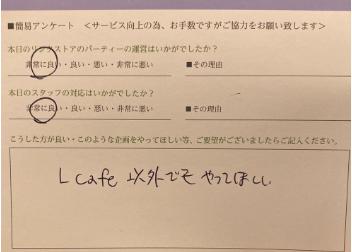 ■簡易アンケート ＜サービス向上の為、お手数ですがご協力をお願い致します＞
本日のリンクストアのパーティーの運営はいかがでしたか？
非常に良い・良い・悪い・非常に悪い ■その理由
本日のスタッフの対応はいかがでしたか？
非常に良い・良い・悪い・非常に悪い ■その理由
こうした方が良い・このような企画をやってほしい等、ご要望がございましたらご記入ください。
L cafe 以外でも やってほしい